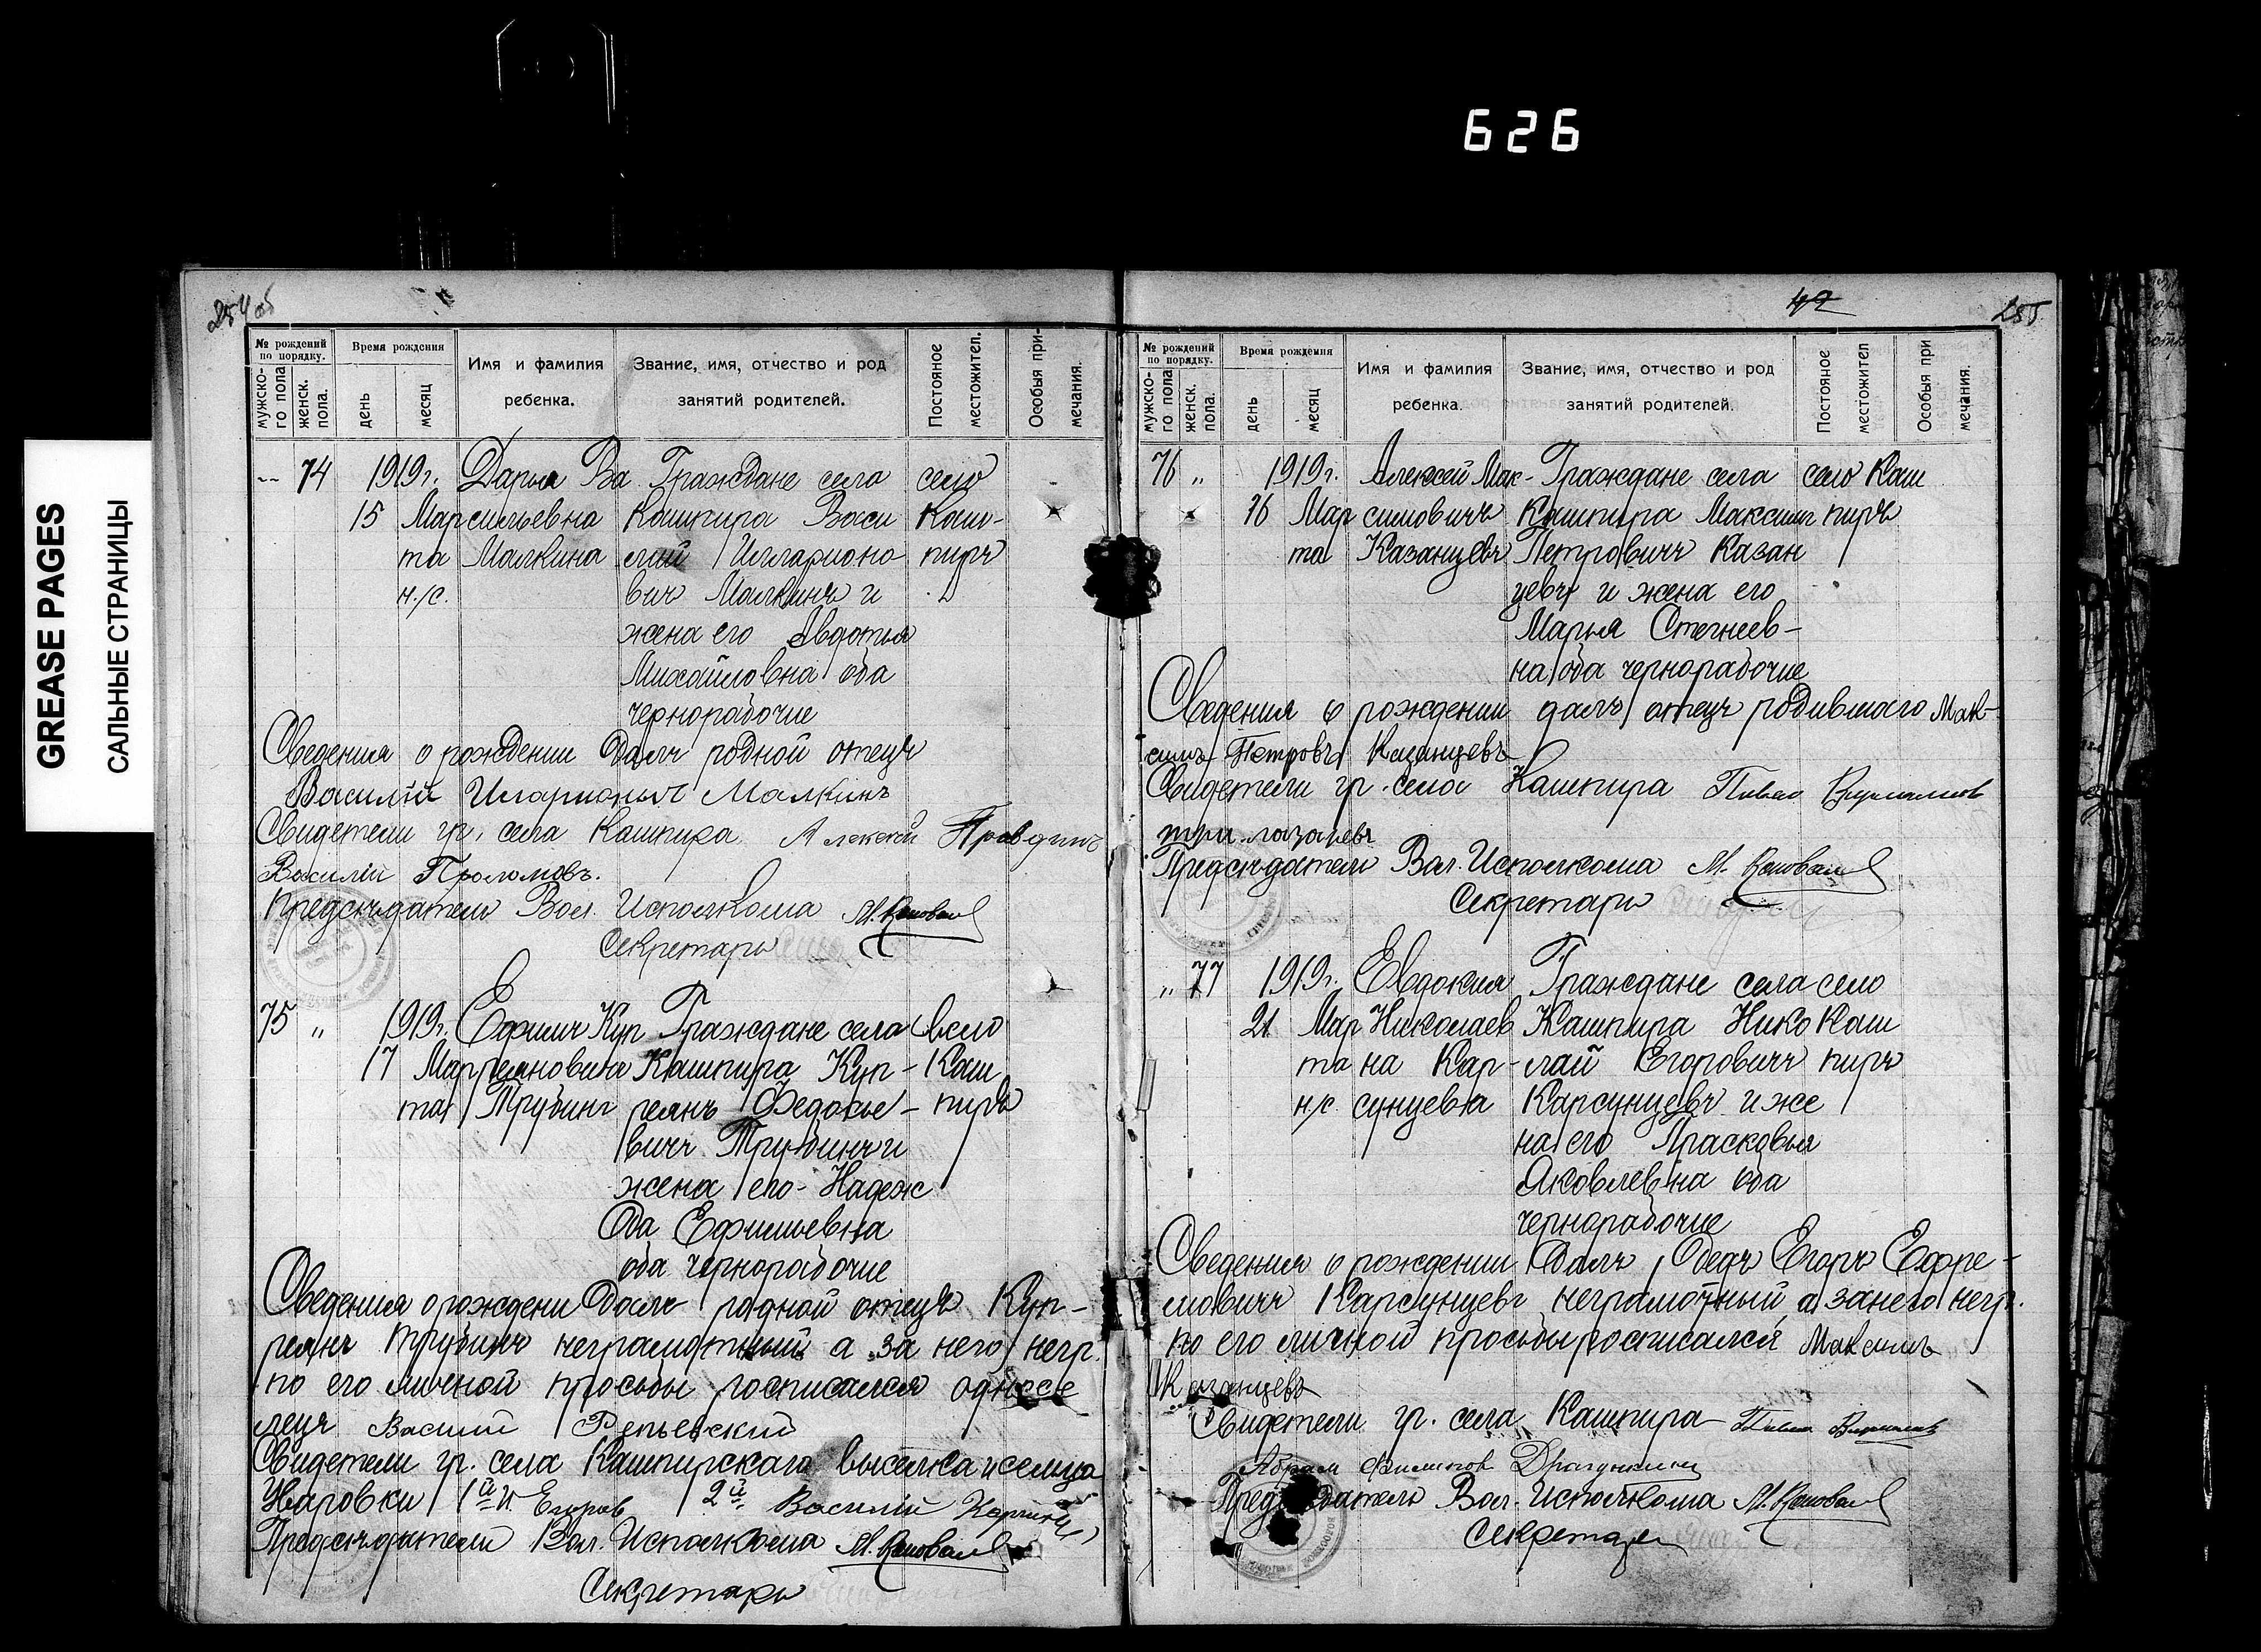 626
GREASE PAGES
САЛЬНЫЕ СТРАНИЦЫ
254 об
№ рождений по порядку.
мужско-го пола
женск. пола.
Время рождения
день
месяц
Имя и фамилия ребенка.
Звание, имя, отчество и род занятий родителей.
Постояное местожител.
Особыя при-мечания.
-- 74 1919г. Дарья Ва Граждане села село
15 Мар сильевна Кашпира Васи Каш-
та Малкина лий Илларионо пиръ
н./с. вич Малкинъ и
жена его Авдотья
Михайловна оба
чернорабочие
Сведения о рождении далъ родной отецъ
Василий Иларионыч Малкинъ
Свидетели гр. села Кашпира Алексей Правдинъ
Василий
Председатель Вол. Исполкома
Секретарь
75 „ 1919г. Ефимъ Куп Граждане села село
17 Мар реянович Кашпира Куп- Каш
та Трубинъ реянъ Федосье- пиръ
вичъ Трубинъ и
жена его Надеж
да Ефимьевна
оба чернорабочие
Сведения о рождени далъ родной отецъ Куп-
реянъ Трубинъ неграмотный а за него негр.
по его личной просьбы росписался односе
лецъ Василий Репьевский
Свидетели гр. села Кашпирскаго выселка и сельца
Уваровки 1й И. Егоров 2й Василий
Председатель Вол. Исполкома
Секретарь
42
255
№ рождений по порядку.
мужско-го пола
женск. пола.
Время рождения
день
месяц
Имя и фамилия ребенка.
Звание, имя, отчество и род занятий родителей.
Постояное местожител
Особыя при мечания.
76 „ 1919г. Алексей Мак- Граждане села село Каш
16 Мар симовичъ Кашпира Максим пиръ
та Казанцевъ Петровичъ Казан
цевъ и жена его
Марья Стегнеев-
на оба чернорабочие
Сведения о рождении далъ отецъ родившаго Мак-
симъ Петровъ Казанцевъ
Свидетели гр. села Кашпира Павел
Председатель Вол. Исполкома
Секретарь
„ 77 1919г. Евдокия Граждане села село
21 Мар Николаев Кашпира Нико Каш
та на Кар- лай Егоровичъ пиръ
н/с. сунцева Карсунцевъ и же
на его Прасковья
Яковлевна оба
чернорабочие
Сведения о рождении далъ дедъ Егоръ Ефре-
мовичъ Карсунцевъ неграмотный а за него негр.
по его личной просьбы росписался Максимъ
Казанцевъ
Свидетели гр. села Кашпира Павел
Абрам Филипов Драгункин
Председатель Вол. Исполкома
Секретарь